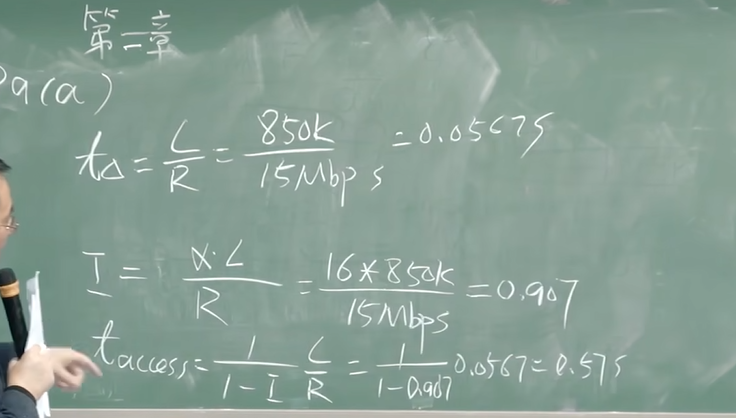 第二章
P9(a)
t△ = L/R = 850k/15Mbps = 0.0567s
I = α·L/R = 16*850k/15Mbps = 0.907
taccess = 1/1-I L/R = 1/1-0.907 0.0567 = 0.57s